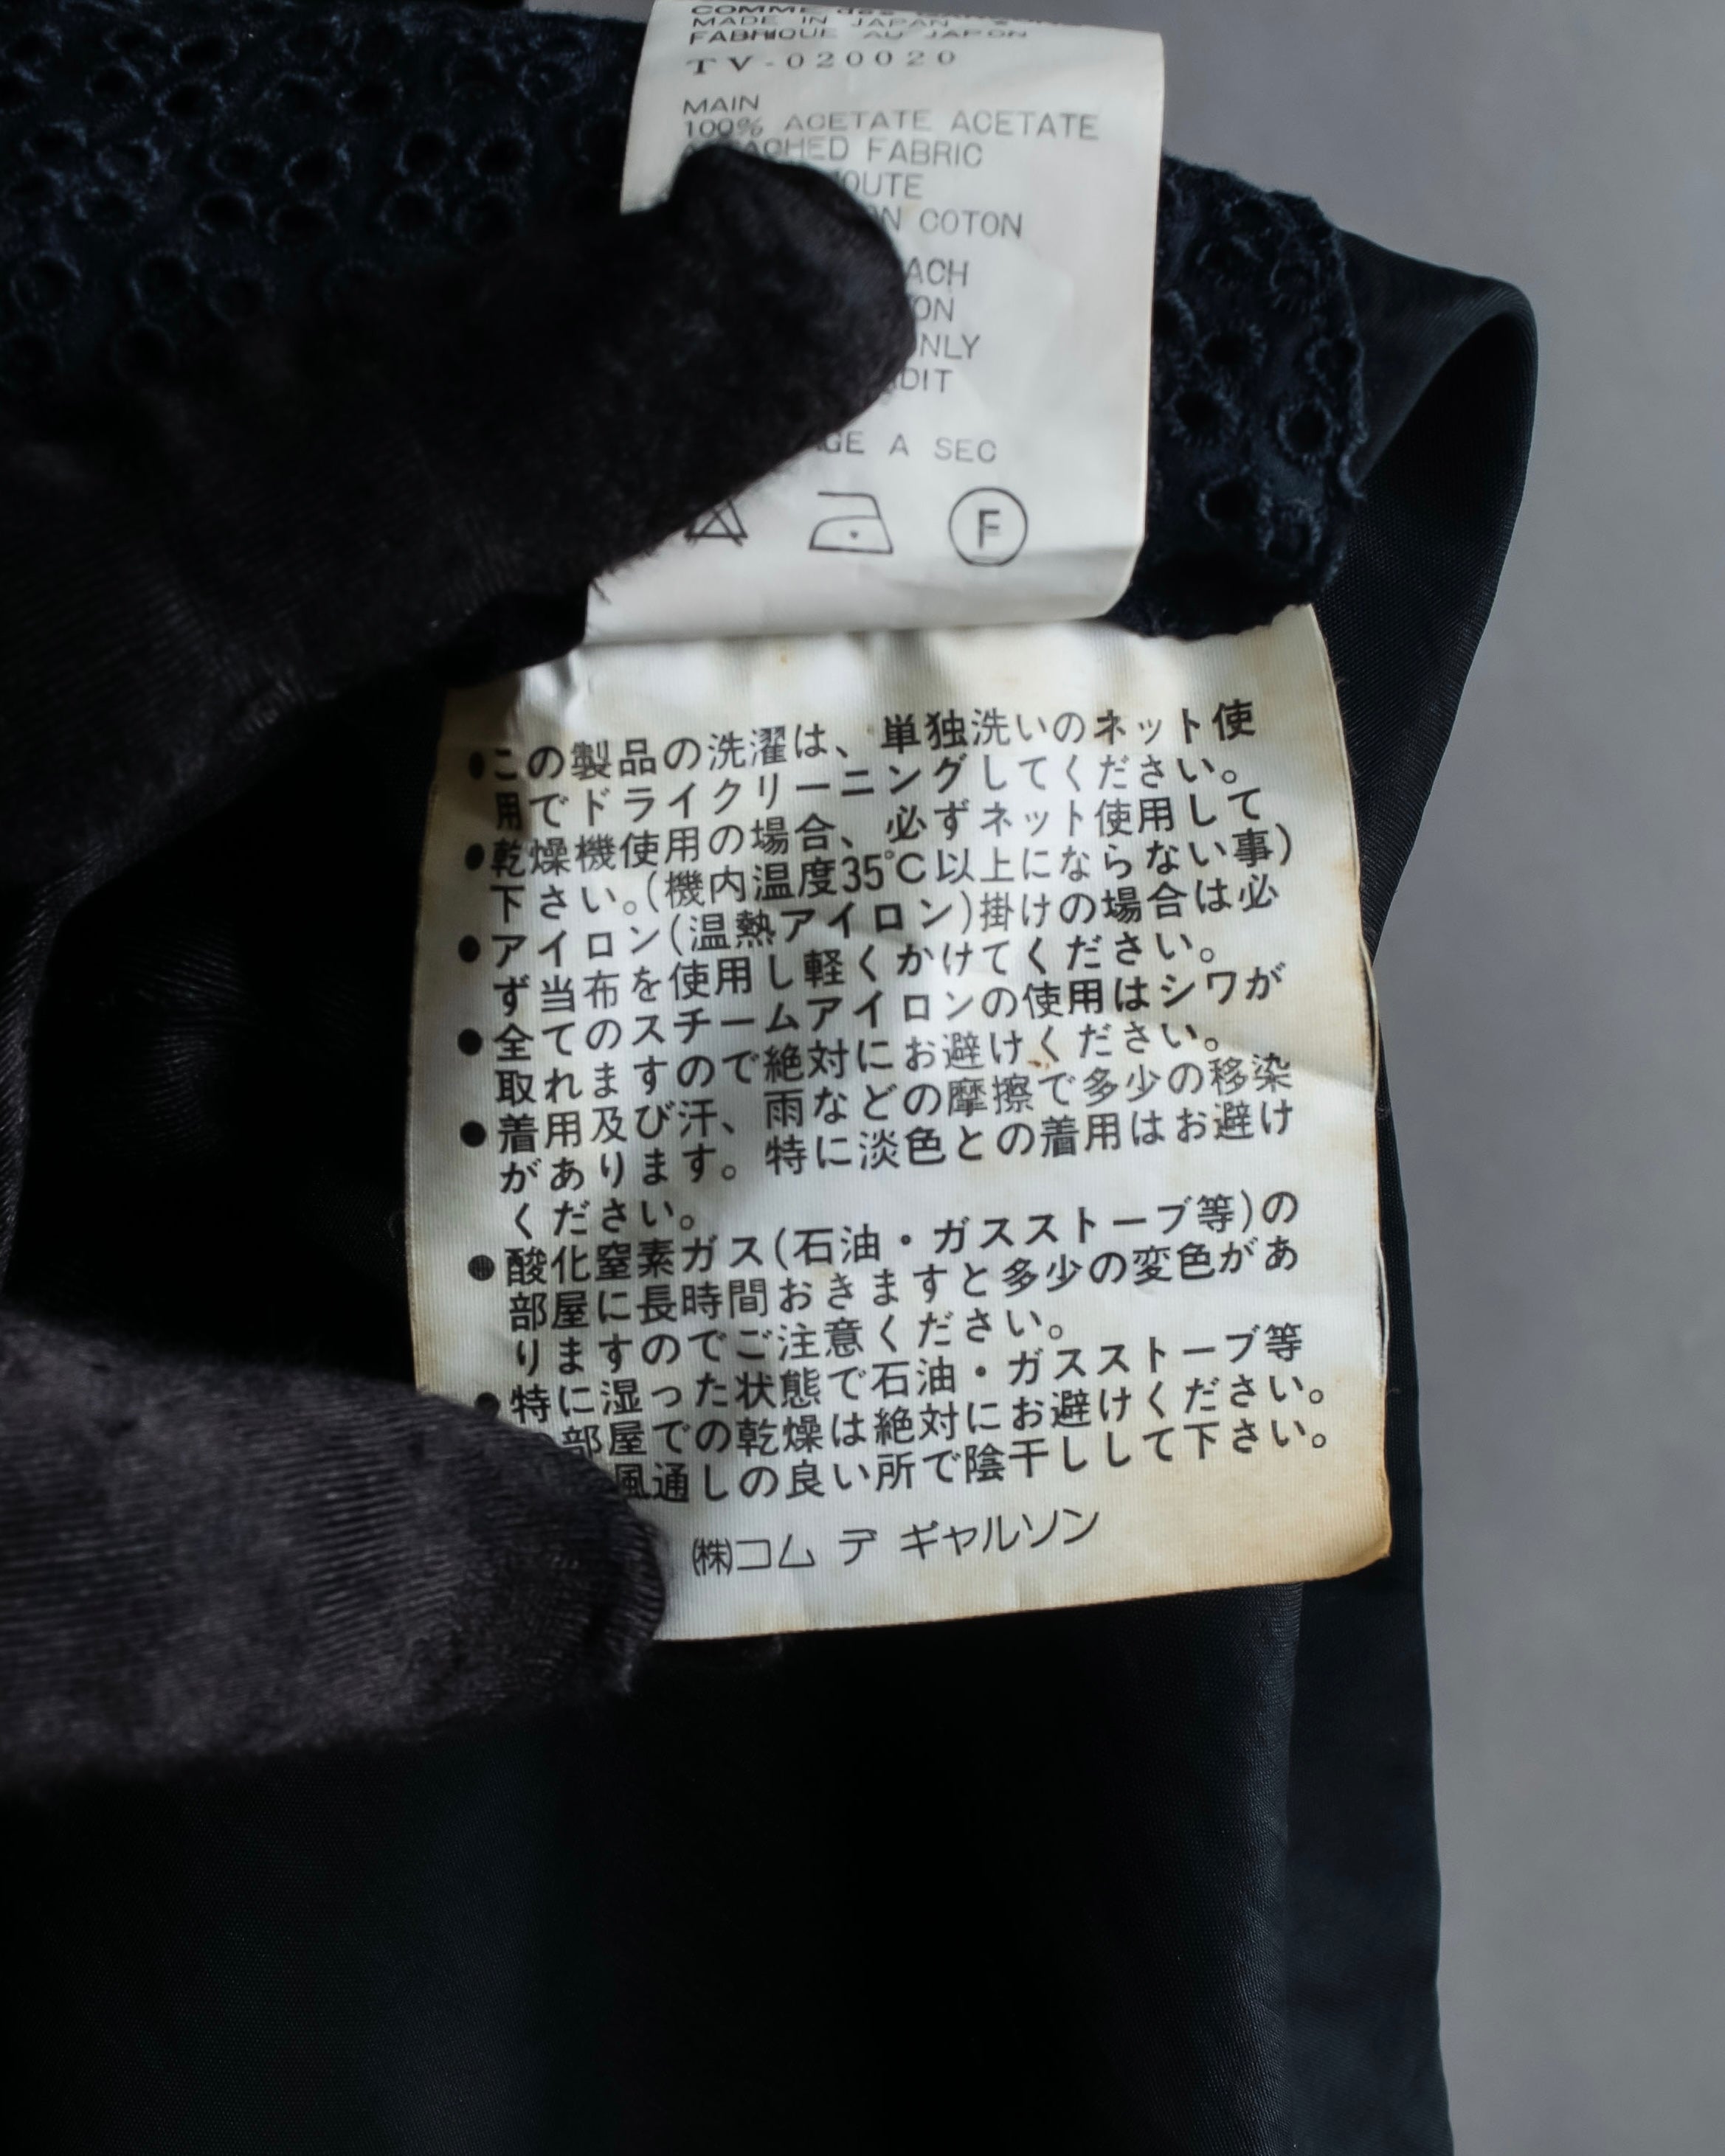 COMME des
MADE IN JAPAN
FABRIQUE AU JAPON
TV-020020
MAIN
100% ACETATE ACETATE
FABRIC
COTON
A SEC
F
●この製品の洗濯は、単独洗いのネット使
用でドライクリーニングしてください。
●乾燥機使用の場合、必ずネット使用して
下さい。(機内温度35℃以上にならない事)
●アイロン(温熱アイロン)掛けの場合は必
ず当布を使用し軽くかけてください。
●全てのスチームアイロンの使用はシワが
取れますので絶対にお避けください。
●着用及び汗、雨などの摩擦で多少の移染
があります。特に淡色との着用はお避け
ください。
●酸化窒素ガス(石油・ガスストーブ等)の
部屋に長時間おきますと多少の変色があ
りますのでご注意ください。
●特に湿った状態で石油・ガスストーブ等
部屋での乾燥は絶対にお避けください。
風通しの良い所で陰干しして下さい。
㈱コム デ ギャルソン